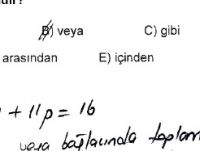 B) veya C) gibi
arasından E) içinden
+ 11p = 16
veya bağlacında toplam